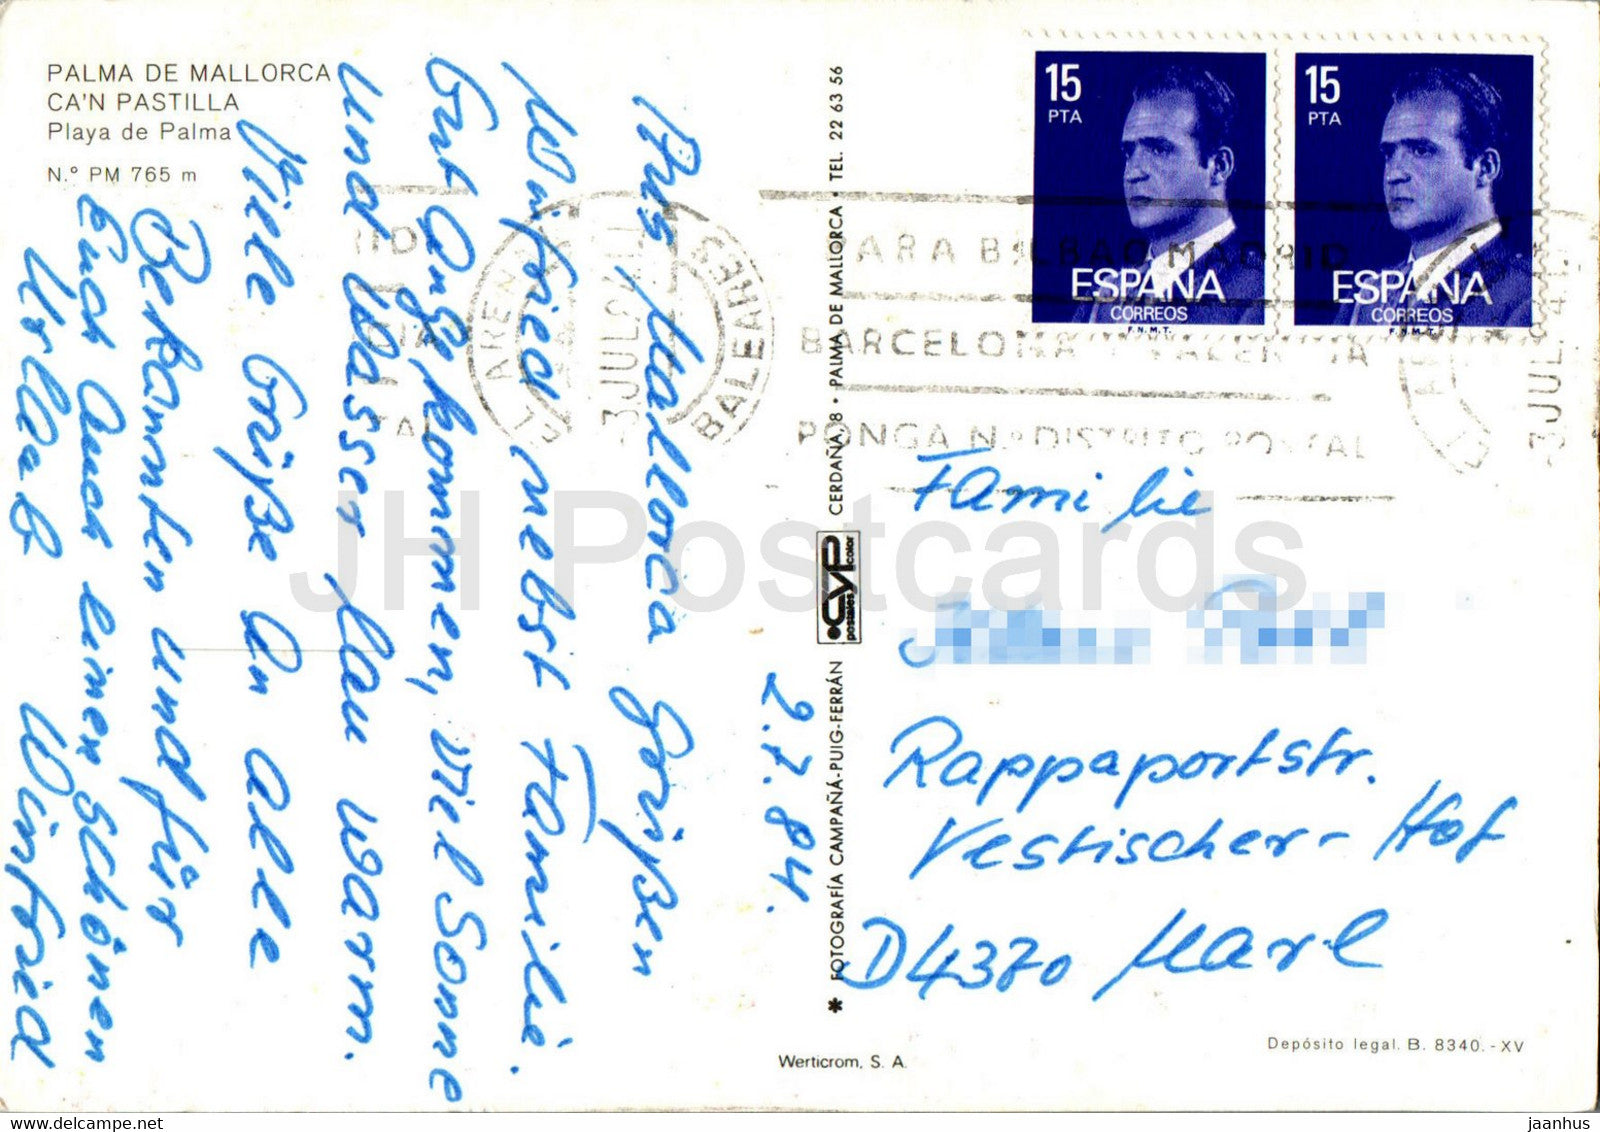 PALMA DE MALLORCA
CA'N PASTILLA
Playa de Palma
N.º PM 765 m
2.7.84.
Aus Mallorca Grüßen
Winfried nebst Familie.
Gut Angekommen, viel Sonne
und Wasser Lau warm.
Viele Grüße An alle
Bekannten und für
Euch Auch einen schönen
Urlaub Winfried
✱ FOTOGRAFÍA CAMPAÑÁ-PUIG-FERRÁN
CYP
postales
color
CERDAÑA, 8 • PALMA DE MALLORCA • TEL. 22 63 56
15
PTA
ESPAÑA
CORREOS
F.N.M.T.
15
PTA
ESPAÑA
CORREOS
F.N.M.T.
EL ARENAL
3 JUL 84
BALEARES
PARA BILBAO MADRID
BARCELONA Y VALENCIA
PONGA Nº DISTRITO POSTAL
3 JUL. 84
Familie
Rappaportstr.
Vestischer-Hof
D4370 Marl
Depósito legal. B. 8340.-XV
Werticrom, S. A.
JH Postcards
www.delcampe.net
jaanhus